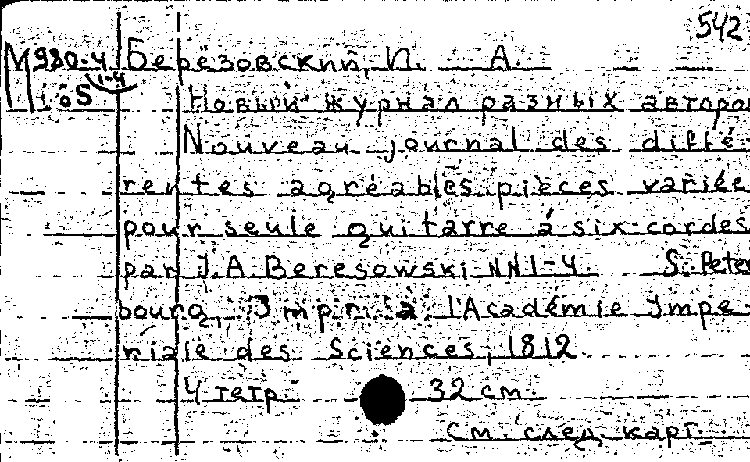 542
М980-4 Берёзовский, И. А.
1-4
1.05 Новый журнал разных авторо
Nouveau journal des diffé-
rentes agréables pièces variée
pour seule guitarre à six cordes
par J.A. Beresowski NN 1-4 S. Peter
bourg, Impr. à l'Académie Impe-
riale des Sciences, 1812
4 тетр. 32 cm.
См. след. карт.